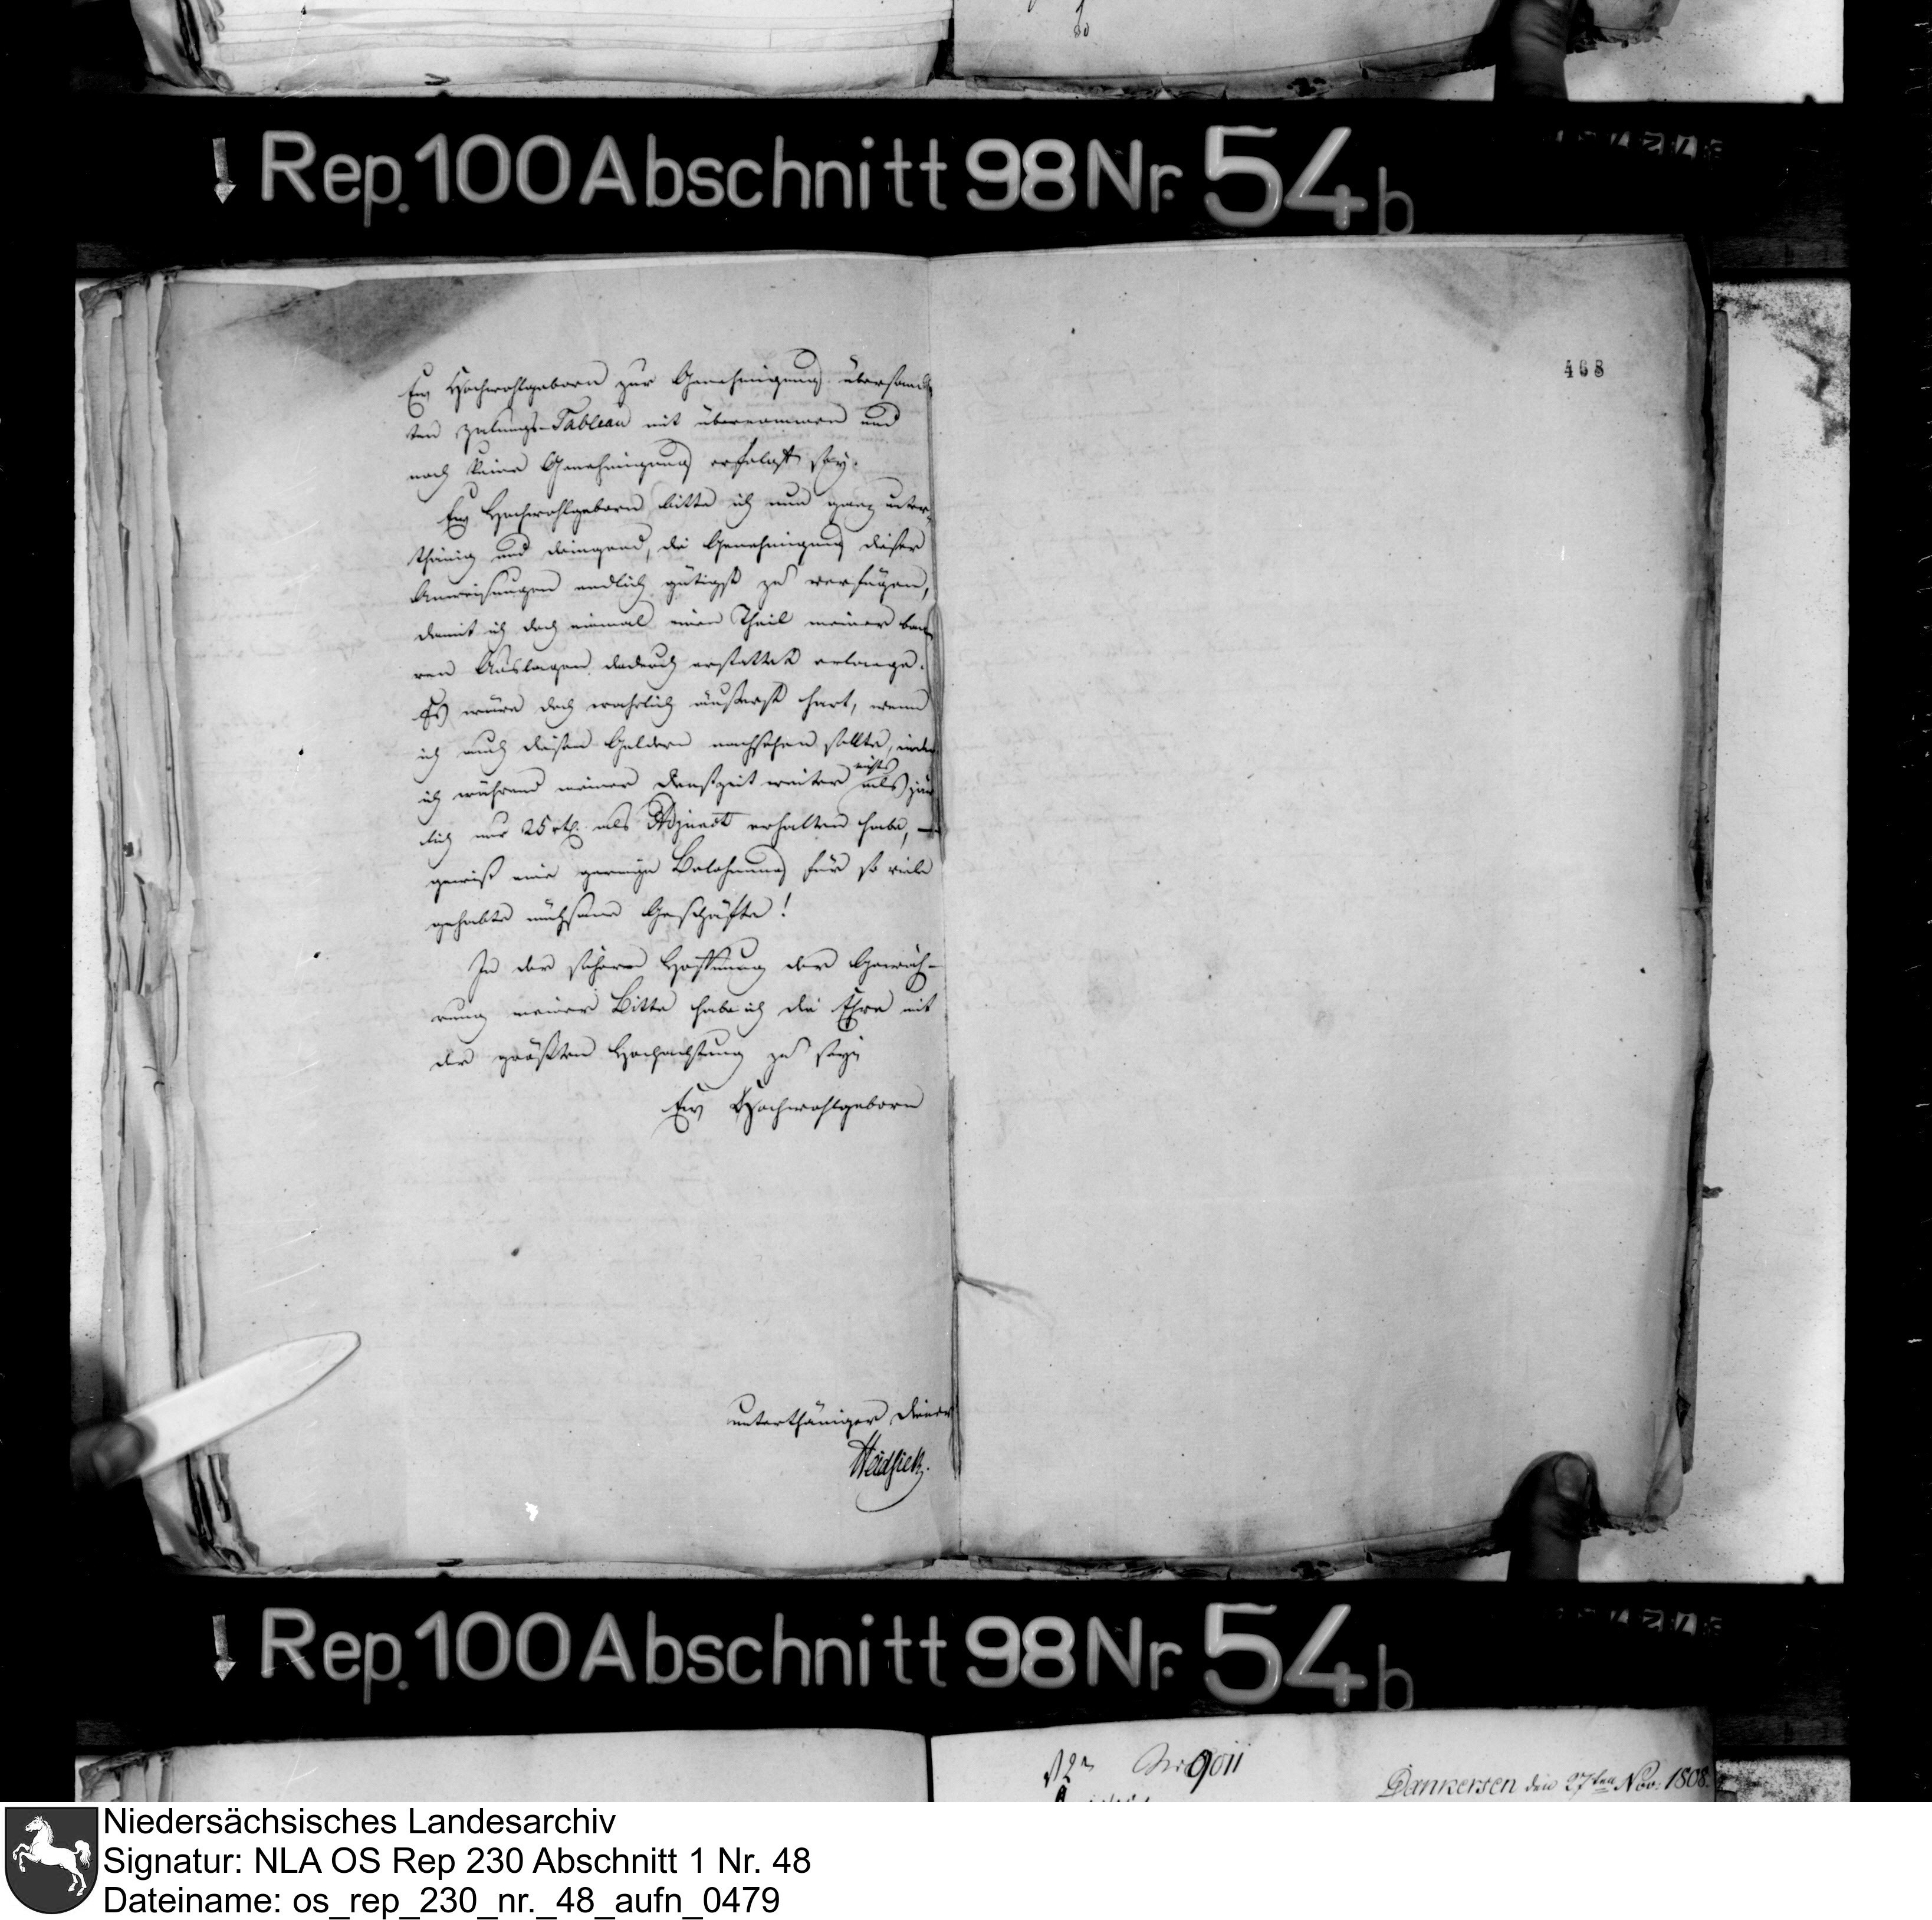 Rep. 100 Abschnitt 98 Nr. 54b
468
Ew Hochwohlgeborn zur Genehmigung übersand
ten Zalungs-Tableau mit übernommen und
noch keine Genehmigung erfolgt sey.
Ew Hochwohlgeborn bitte ich nun ganz unter-
thänig und dringend, die Genehmigung dieser
Anweisungen endlich gütigst zu verfügen,
damit ich doch einmal einen Theil meiner baa
ren Auslagen dadurch erstattet erlange.
Es wäre doch wahrlich äußerst hart, wenn
ich auch diesen Geldern nachsehen sollte, indem
ich während meiner Dienstzeit weiter nichts als jär
lich nur 25 rtl. als Adjunct erhalten habe, —
gewiß eine geringe Belohnung für so viele
gehabte mühsame Geschäfte!
In der sichern Hoffnung der Gewäh-
rung meiner Bitte habe ich die Ehre mit
der größten Hochachtung zu seyn
Ew Hochwohlgeborn
unterthäniger Diener
Heidsiek.
Rep. 100 Abschnitt 98 Nr. 54b
Dankersen den 27ten Nov. 1808.
Niedersächsisches Landesarchiv
Signatur: NLA OS Rep 230 Abschnitt 1 Nr. 48
Dateiname: os_rep_230_nr._48_aufn_0479